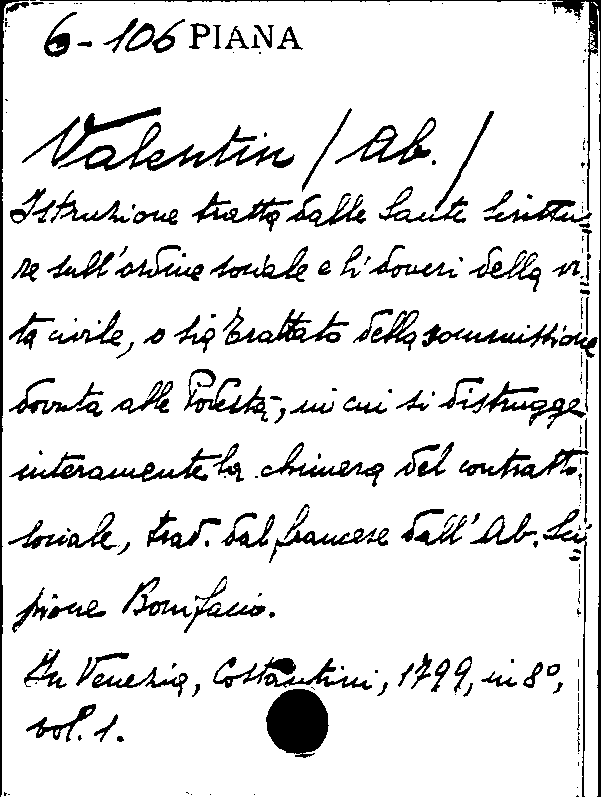 6-106 PIANA
Valentin / Ab. /
Istruzione tratta dalle Sante Scrittu=
re sull'ordine sociale e li doveri della vi=
ta civile, o sia Trattato della sommissione
dovuta alle Podestà, in cui si distrugge
interamente la chimera del contratto
sociale, trad. dal francese dall'Ab. Sci=
pione Bonifacio.
In Venezia, Costantini, 1799, in 8º,
vol. 1.